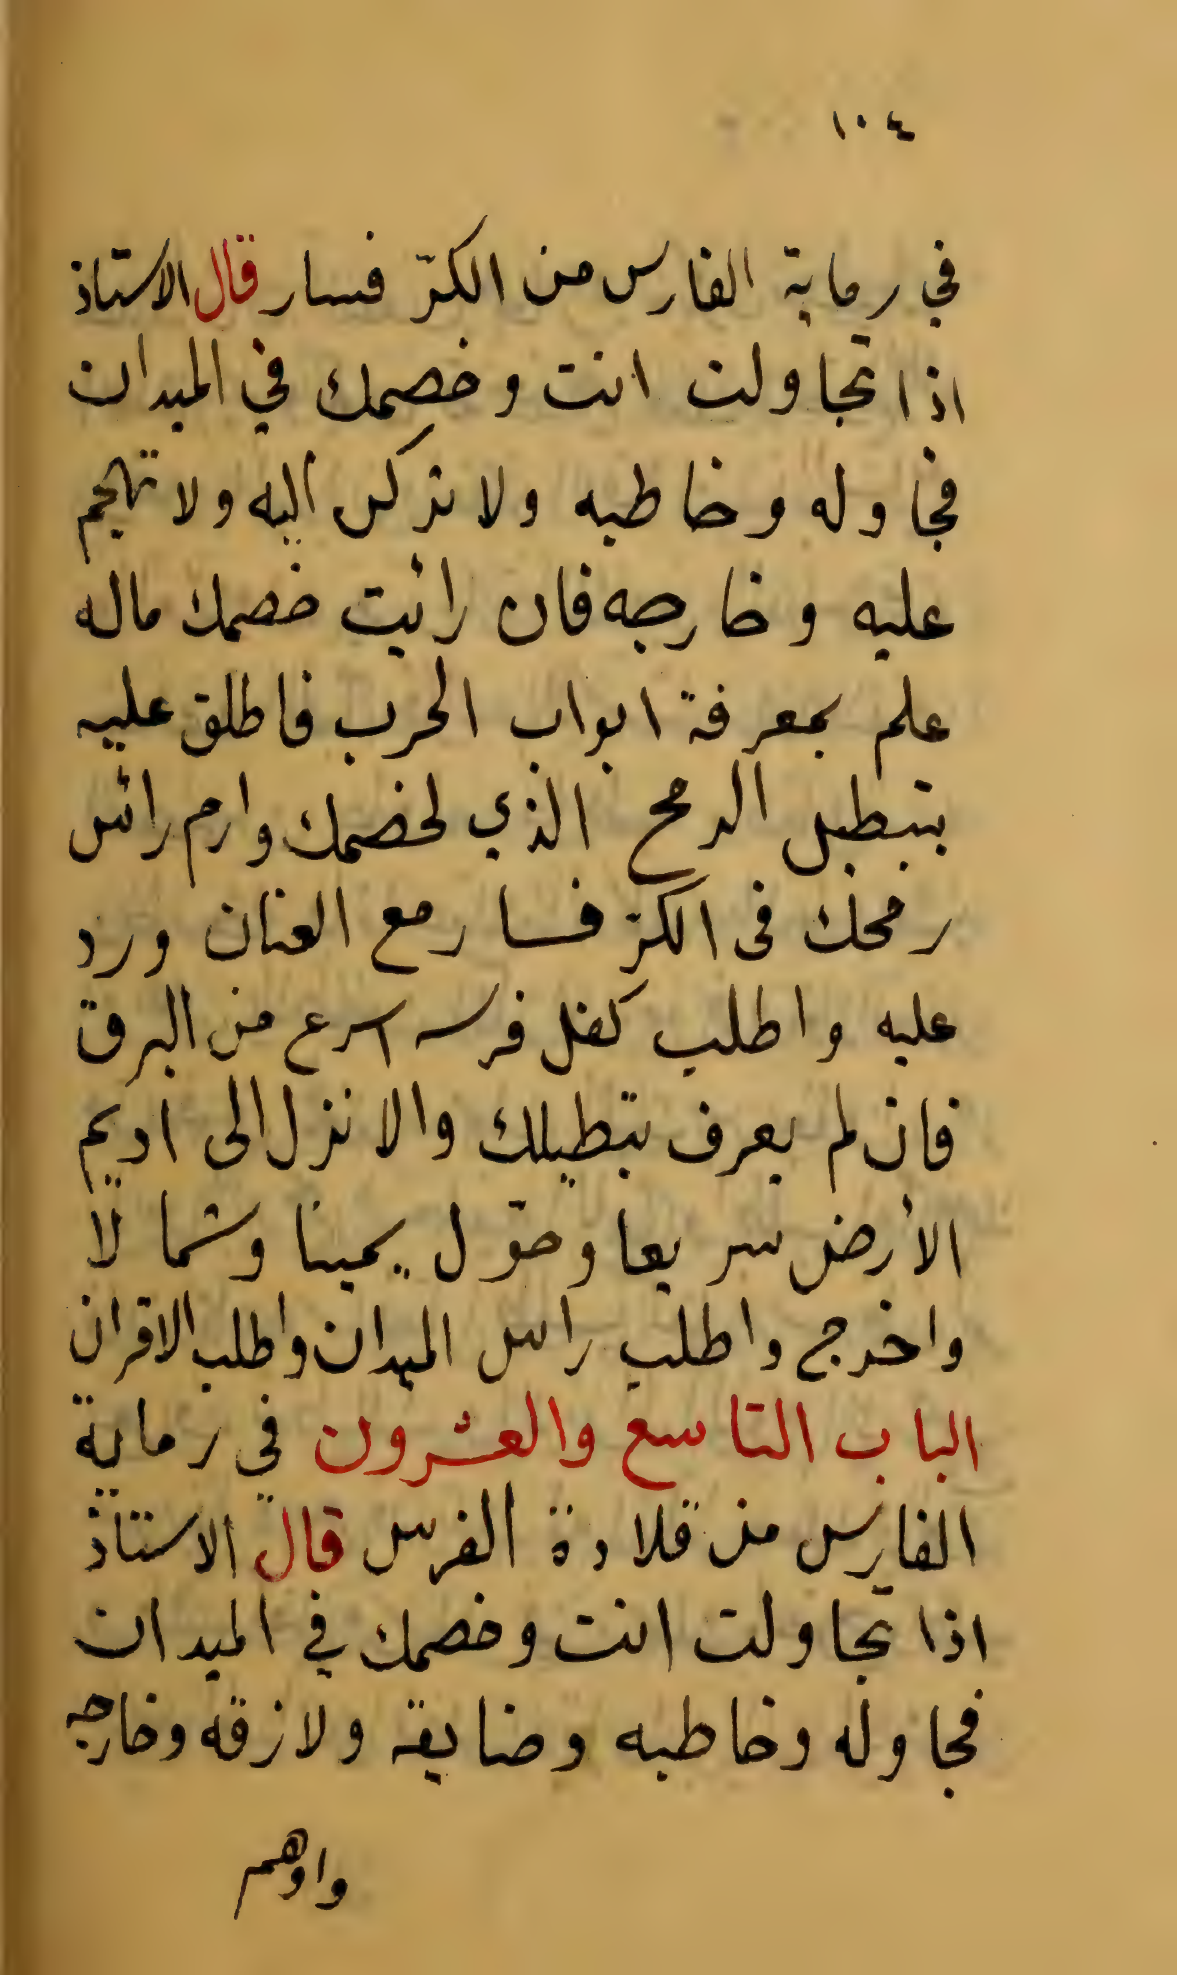 ١٠٤
في رماية الفارس من الكرّ فسار قال الاستاذ
اذا تجاولت انت وخصمك في الميدان
فجاوله وخاطبه ولا تركن اليه ولا تهجم
عليه وخارجه فان رائيت خصمك ماله
علم بمعرفة ابواب الحرب فاطلق عليه
بتبطيل الرمح الذي لخصمك وارم رائس
رمحك فى الكرّ فسار مع العنان ورد
عليه واطلب كفل فرسه اسرع من البرق
فان لم يعرف بتبطيلك والا نزل الى اديم
الأرض سريعا وحوّل يمينا وشمالا
واخرج واطلب راس الميدان واطلب الاقران
الباب التاسع والعشرون في رماية
الفارس من قلادة الفرس قال الاستاذ
اذا تجاولت انت وخصمك في الميدان
فجاوله وخاطبه وضايقه ولازقه وخارجه
واوهم